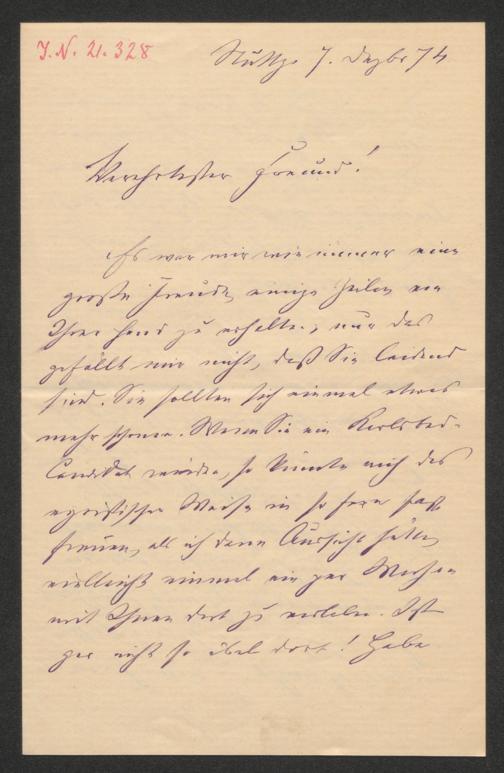 J.N. 21.328
Stuttg. 7. Dezbr 74
Verehrtester Freund!
Es war mir wie immer eine
große Freude, einige Zeilen von
Ihrer Hand zu erhalten, nur das
gefällt mir nicht, daß Sie leidend
sind. Sie sollten sich einmal etwas
mehr schonen. Wenn Sie ein Karlsbad-
Candidat würden, so könnte mich das
egoistischer Weise in so fern fast
freuen, als ich dann Aussicht hätte,
vielleicht einmal ein par Wochen
mit Ihnen dort zu verleben. Ist
gar nicht so übel dort! Habe